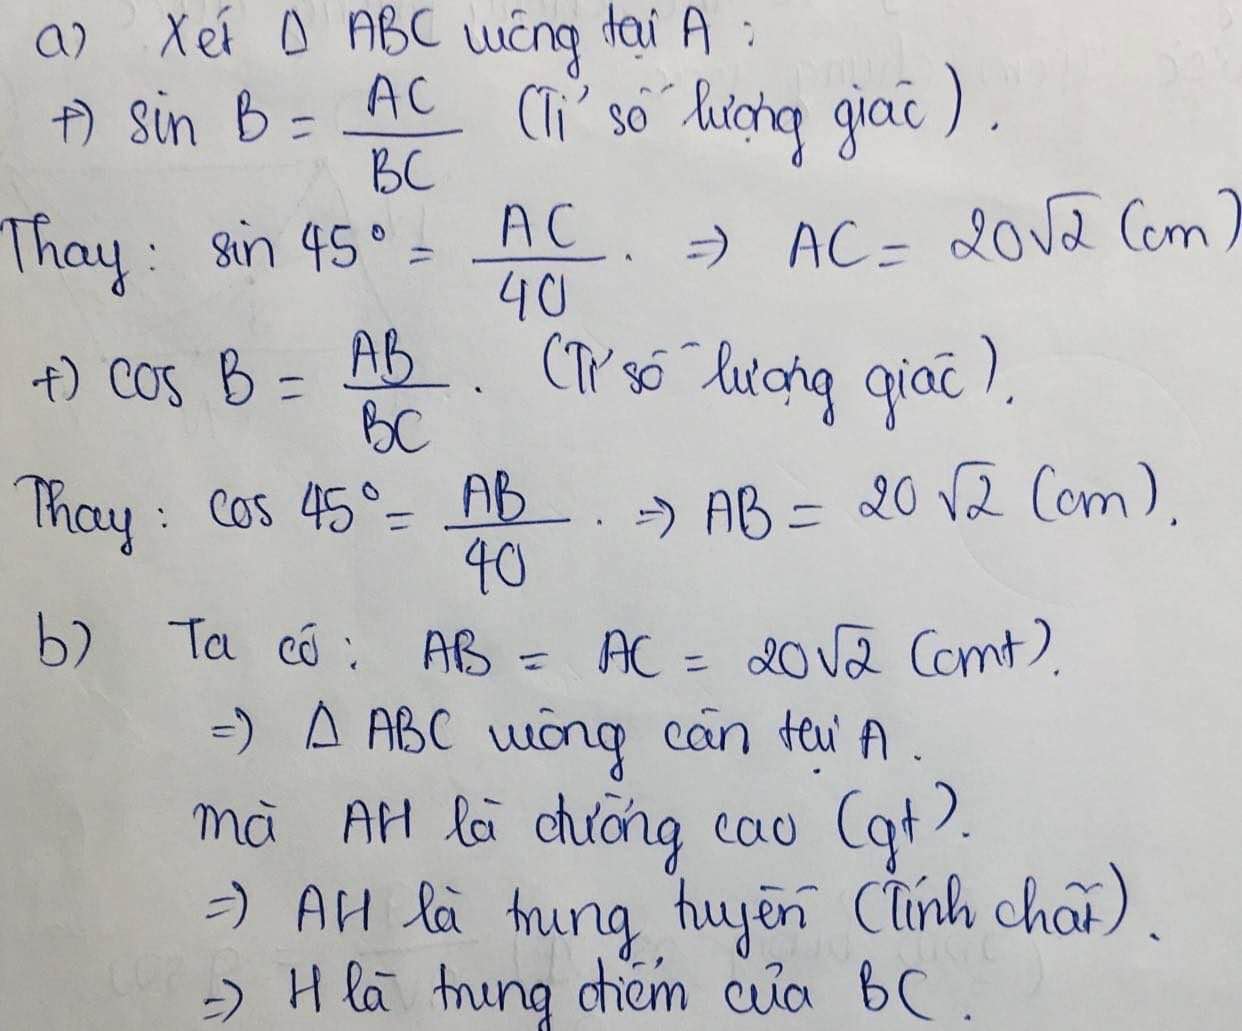 a) Xét Δ ABC vuông tại A :
+) sin B = AC/BC (Tỉ số lượng giác).
Thay: sin 45° = AC/40. ⇒ AC = 20√2 (cm)
+) cos B = AB/BC. (Tỉ số lượng giác).
Thay: cos 45° = AB/40. ⇒ AB = 20√2 (cm).
b) Ta có: AB = AC = 20√2 (cmt).
⇒ Δ ABC vuông cân tại A.
mà AH là đường cao (gt).
⇒ AH là trung tuyến (Tính chất).
⇒ H là trung điểm của BC.